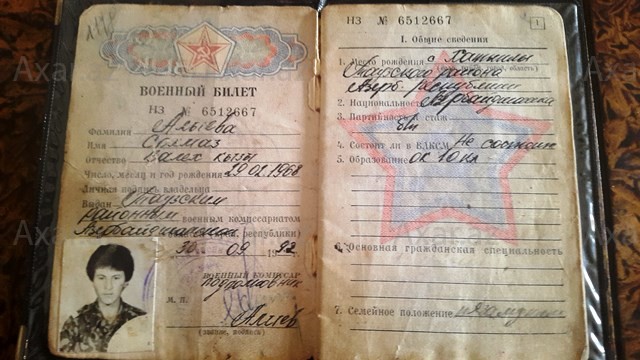 ВОЕННЫЙ БИЛЕТ
НЗ № 6512667
Фамилия Алыева
Имя Солмаз
Отчество Валех кызы
Число, месяц и год рождения 29.02.1968
Личная подпись владельца
Выдан
районным военным комиссариатом
Азербайджанской республики)
30. 09 1992
ВОЕННЫЙ КОМИССАР
подполковник
М. П.
Алыев
(звание, подпись)
НЗ № 6512667
1
I. Общие сведения
1. Место рождения с.
района
Азерб. республики
2. Национальность Азербайджанка
3. Партийность и стаж
б/п
4. Состоит ли в ВЛКСМ Не состоит
5. Образование ок 10 кл
6. Основная гражданская специальность
7. Семейное положение